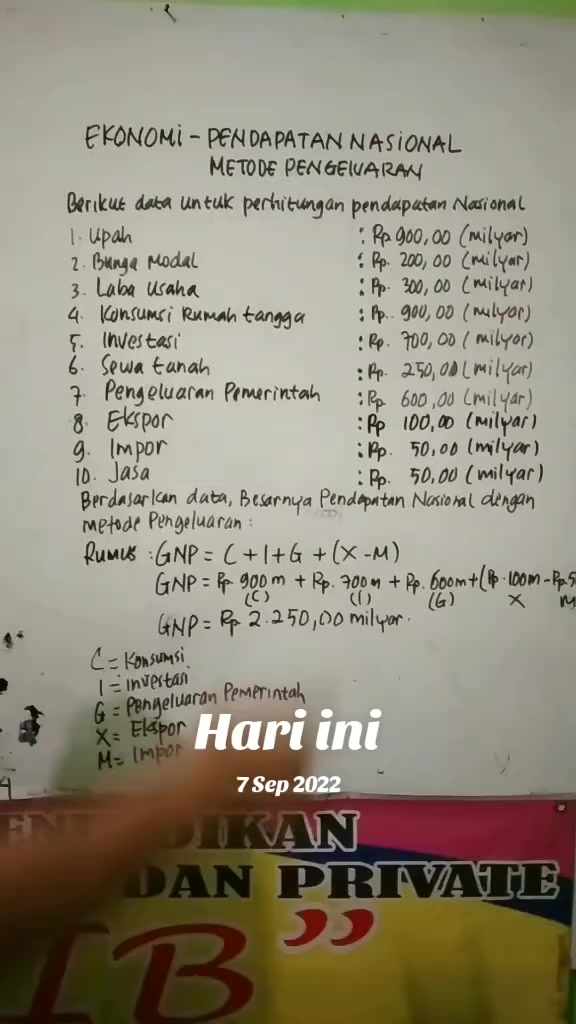 EKONOMI - PENDAPATAN NASIONAL
METODE PENGELUARAN
Berikut data untuk perhitungan pendapatan Nasional
1. Upah : Rp 900,00 (milyar)
2. Bunga Modal : Rp. 200,00 (milyar)
3. Laba Usaha : Rp. 300,00 (milyar)
4. Konsumsi Rumah tangga : Rp. 900,00 (milyar)
5. Investasi : Rp. 700,00 (milyar)
6. Sewa tanah : Rp. 250,00 (milyar)
7. Pengeluaran Pemerintah : Rp 600,00 (milyar)
8. Ekspor : Rp 100,00 (milyar)
9. Impor : Rp. 50,00 (milyar)
10. Jasa : Rp. 50,00 (milyar)
Berdasarkan data, Besarnya Pendapatan Nasional dengan
metode Pengeluaran :
Rumus : GNP = C + I + G + (X - M)
GNP = Rp 900 m + Rp. 700 m + Rp. 600 m + (Rp. 100m - Rp.5
(C) (I) (G) X M
GNP = Rp 2.250,00 milyar.
C = Konsumsi
I = investasi
G = Pengeluaran Pemerintah
X = Ekspor
M = Impor
Hari ini
7 Sep 2022
DAN PRIVATE
IB"